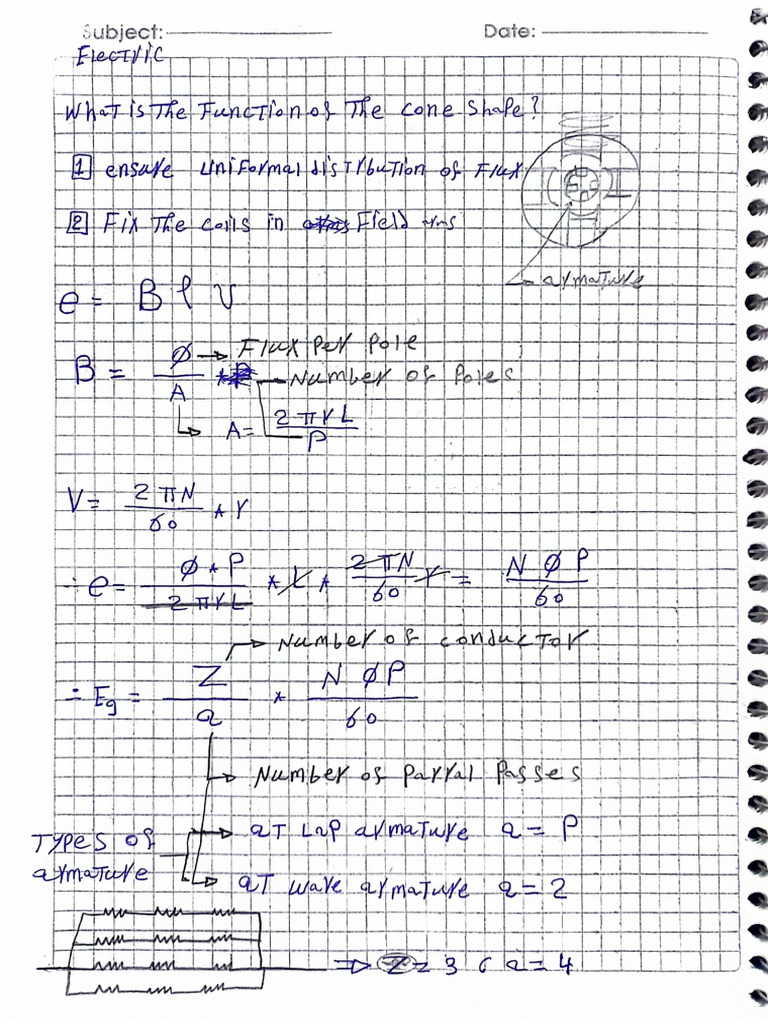 Subject: Date:
Electric
What is The Function of The cone shape?
1 ensure uniformal distrbution of Flux
2 Fix The coils in Field arms
armature
e = B l v
B = ∅ / A → Flux Per Pole
* → Number of Poles
A = 2πrL / P
V = 2πN / 60 * r
∴ e = ∅ * P / 2πrL * L * 2πN / 60 r = N∅P / 60
→ Number of conductor
∴ Eg = Z / a * N∅P / 60
→ Number of Parral Passes
Types of armature
→ aT Lap armature a = P
→ aT wave armature a = 2
⇒ Z = 3 , a = 4